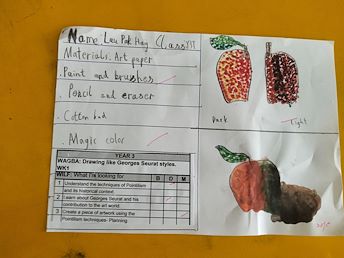 Name: Lau Pak Hay Class Y3T
Materials: Art paper
. Paint and brushes
. Pencil and eraser
. Cotton bud
. Magic color
YEAR 3
WAGBA: Drawing like Georges Seurat styles.
WK1
WILF: What I'm looking for B D M
1 Understand the techniques of Pointilism and its historical context
2 Learn about Georges Seurat and his contribution to the art world.
3 Create a piece of artwork using the Pointilism techniques- Planning
Dark
Light